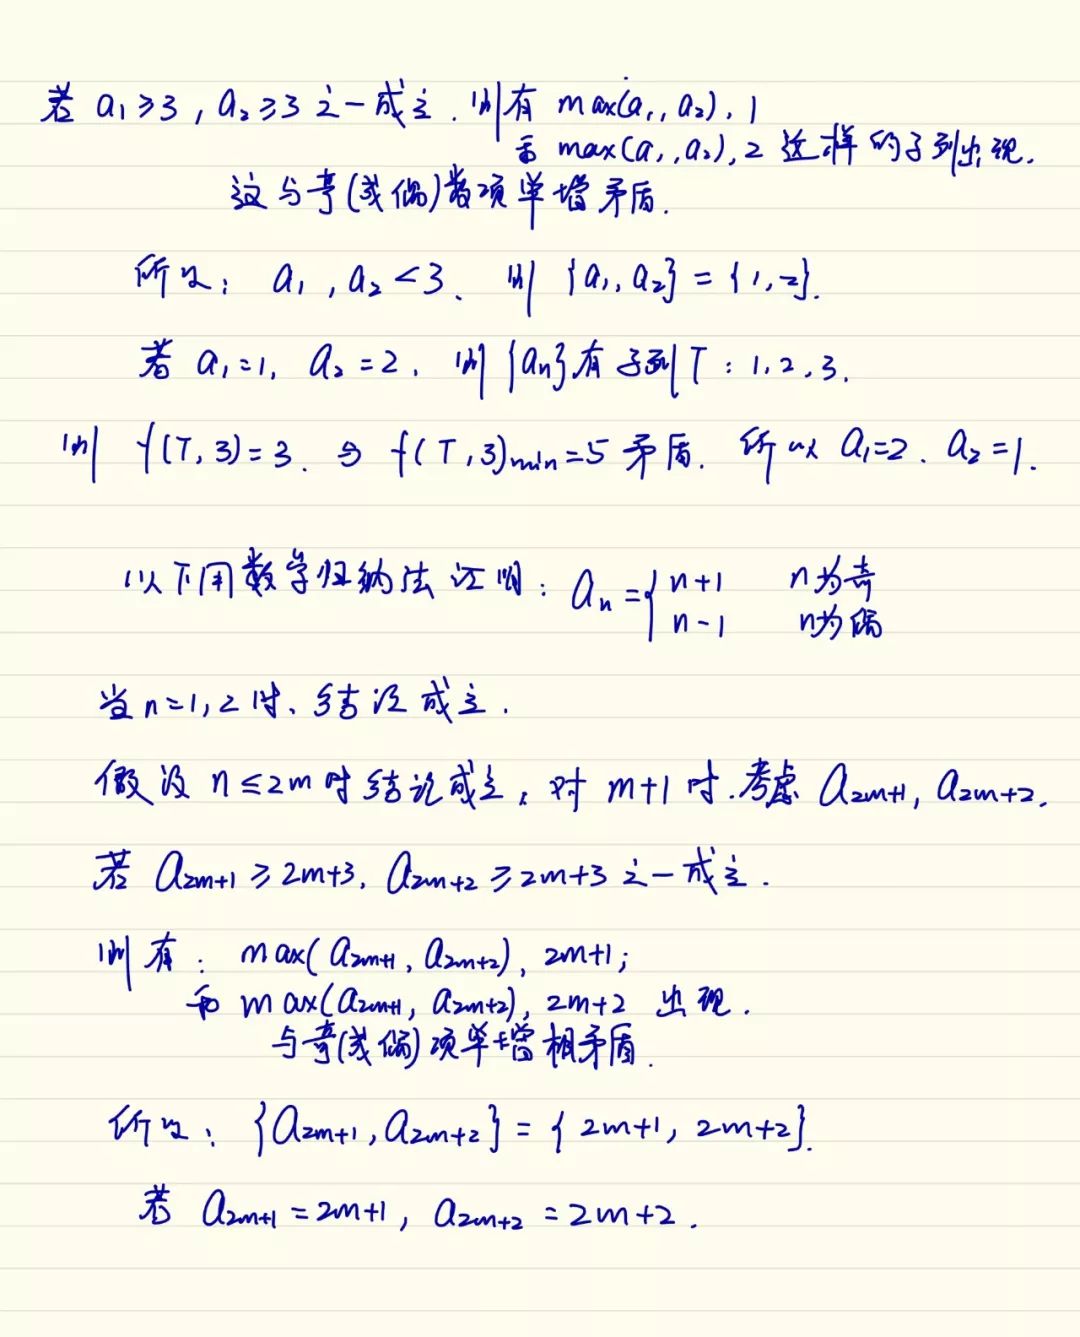 若 a₁≥3, a₂≥3 之一成立. 则有 max(a₁, a₂), 1
和 max(a₁, a₂), 2 这样的子列出现.
这与奇(或偶)数项单增矛盾.
所以: a₁, a₂<3. 则 {a₁, a₂} = {1, 2}.
若 a₁=1, a₂=2. 则 {aₙ}有子列 T: 1, 2, 3.
则 f(T, 3)=3. 与 f(T, 3)min=5 矛盾. 所以 a₁=2. a₂=1.
以下用数学归纳法证明: aₙ = { n+1 n为奇
n-1 n为偶
当 n=1, 2 时、结论成立.
假设 n≤2m 时结论成立, 对 m+1 时. 考虑 a₂ₘ₊₁, a₂ₘ₊₂.
若 a₂ₘ₊₁≥2m+3, a₂ₘ₊₂≥2m+3 之一成立.
则有: max(a₂ₘ₊₁, a₂ₘ₊₂), 2m+1;
和 max(a₂ₘ₊₁, a₂ₘ₊₂), 2m+2 出现.
与奇(或偶)项单增相矛盾.
所以: {a₂ₘ₊₁, a₂ₘ₊₂} = {2m+1, 2m+2}.
若 a₂ₘ₊₁=2m+1, a₂ₘ₊₂=2m+2.